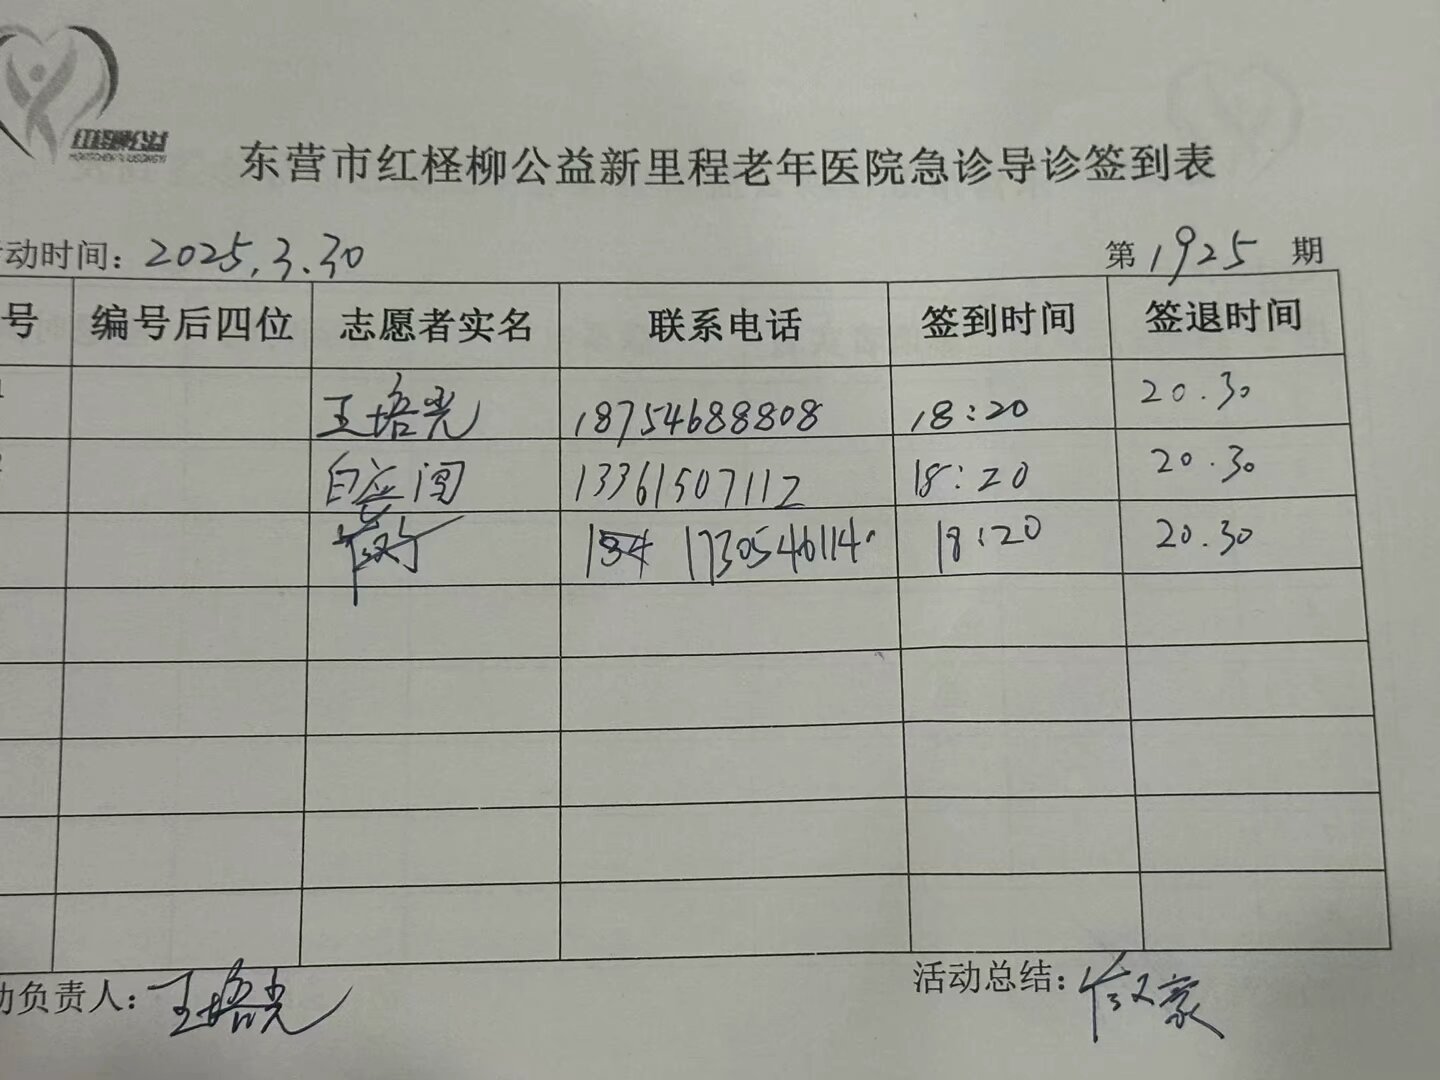 红柽柳公益
东营市红柽柳公益新里程老年医院急诊导诊签到表
动时间：2025.3.30 第1925期
号 编号后四位 志愿者实名 联系电话 签到时间 签退时间
王培光 18754688808 18:20 20.30
白应闯 13361507112 18:20 20.30
1730546114 18:20 20.30
动负责人：王培光 活动总结：